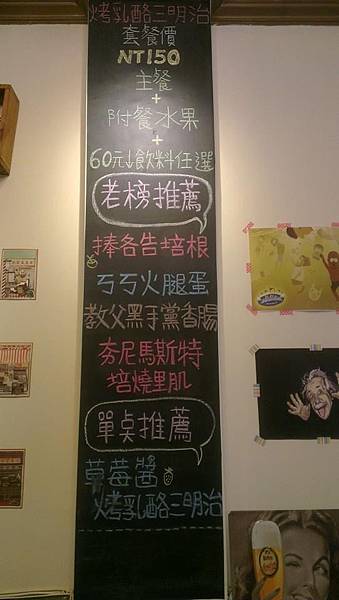 烤乳酪三明治
套餐價
NT150
主餐
+
附餐水果
+
60元↓飲料任選
老榜推薦
捧各告培根
ㄎㄎ火腿蛋
教父黑手黨香腸
夯尼馬斯特
培燒里肌
單点推薦
草莓醬
烤乳酪三明治